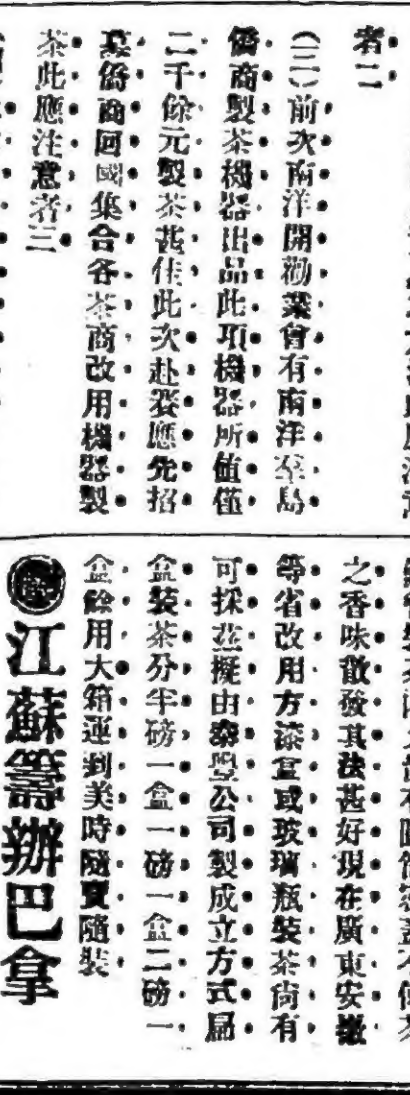 者二
(三)前次南洋開勸業會有南洋各島
僑商製茶機器出品此項機器所值僅
二千餘元製茶甚佳此次赴賽應先招
募僑商回國集合各茶商改用機器製
茶此應注意者三
之香味散發其法甚好現在廣東安徽
等省改用方漆盒或玻璃瓶裝茶尚有
可採茲擬由泰豐公司製成立方式扁
盒裝茶分半磅一盒一磅一盒二磅一
盒餘用大箱運到美時隨賣隨裝
江蘇籌辦巴拿